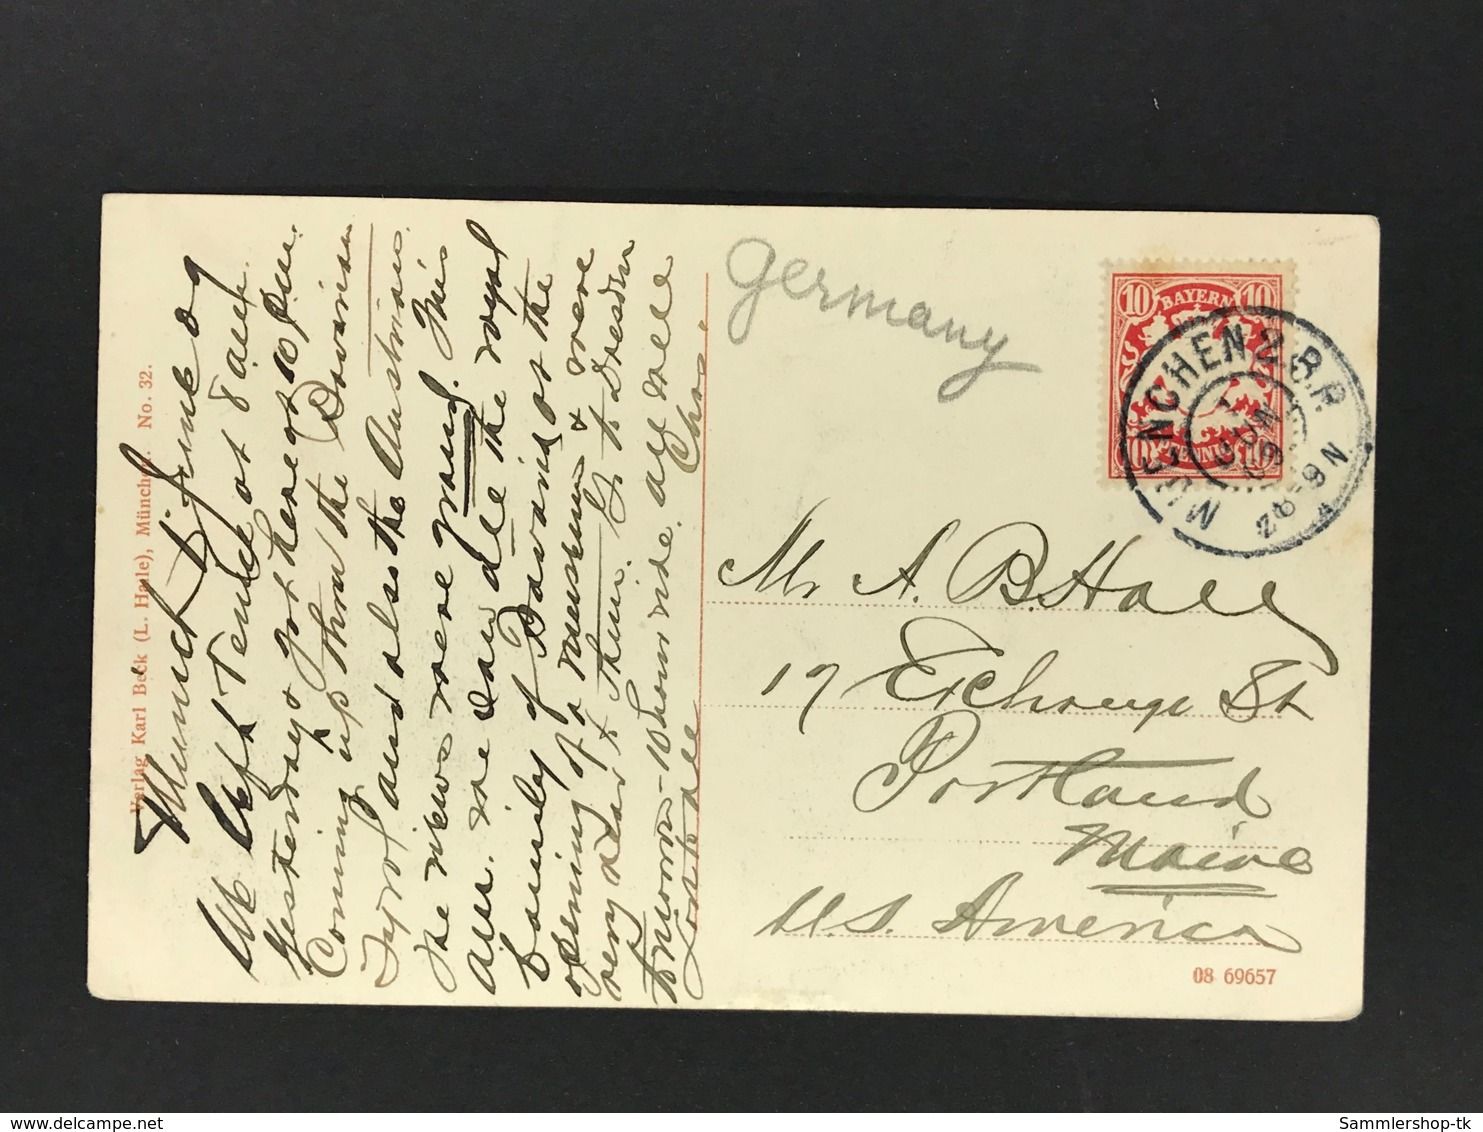 Munich 1 June 09
We left Venice at 8 a.m.
yesterday & got here at 10 p.m.
Coming up thro the Bavarian
Tyrol and also the Austrian.
The views were grand. This
a.m. we saw all the royal
family of Bavaria at the
opening of a museum & were
very near to them. Go to Dresden
tomorrow - 10 hour ride. all well
Love to all
Chas.
Verlag Karl Beck (L. Halle), München. No. 32.
Germany
10 BAYERN 10
MUENCHEN 2. B.P.
1 JUN 09
N 8-9
Mr A. B. Hall
17 Exchange St
Portland
Maine
U.S. America
08 69657
Sammlershop-tk
www.delcampe.net